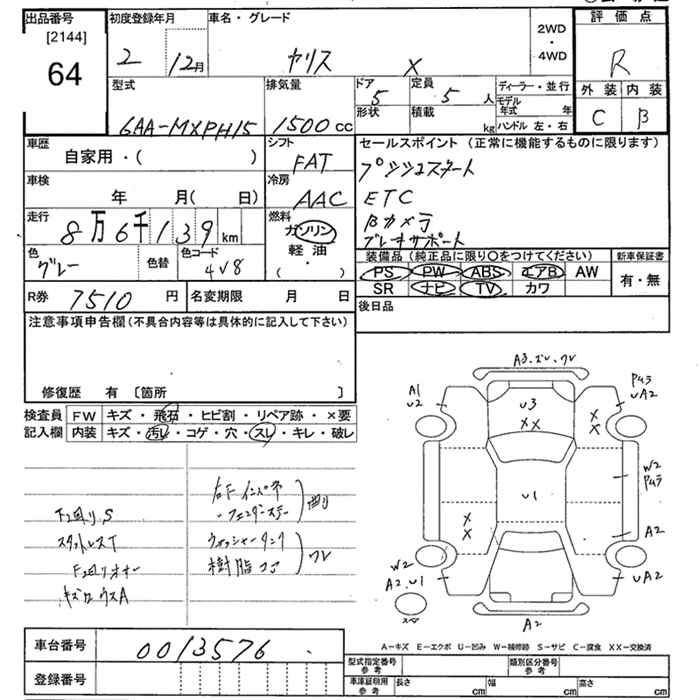 出品番号
[2144]
64
初度登録年月
2 12月
車名・グレード
ヤリス X
2WD
・
4WD
評価点
R
外装 内装
C B
型式
6AA-MXPH15
排気量
1500 cc
ドア 5
形状
定員 5 人
積載 kg
ディーラー・並行
モデル年式 年
ハンドル 左・右
車歴
自家用・( )
シフト
FAT
セールスポイント (正常に機能するものに限ります)
プッシュスタート
ETC
Bカメラ
ブレーキサポート
車検
年 月( 日)
冷房
AAC
走行
8万6千139 km
燃料
ガソリン
軽油
( ・ )
色
グレー
色替
色コード
4V8
装備品 (純正品に限り○をつけてください)
PS PW ABS エアB AW
SR ナビ TV カワ
新車保証書
有・無
R券 7510 円
名変期限 月 日
後日品
注意事項申告欄(不具合内容等は具体的に記入して下さい)
修復歴 有 〔箇所 〕
検査員
記入欄
FW キズ・飛石・ヒビ割・リペア跡・×要
内装 キズ・汚レ・コゲ・穴・スレ・キレ・破レ
F2回りS
スタットレスT
右Fインパネ
・フェンダーステー
曲り
ウォッシャータンク
樹脂コア
ワレ
A3.ズレ.ワレ
A1
U2
U3
XX
XX
UA2
W2
U1
XX
A2
W2
A2.U1
UA2
A2
スペア
車台番号 0013576
登録番号
A―キズ E―エクボ U―凹み W―補修跡 S―サビ C―腐食 XX―交換済
型式指定番号
参考
類別区分番号
参考
車庫証明用
参考
長さ cm
幅 cm
高さ cm